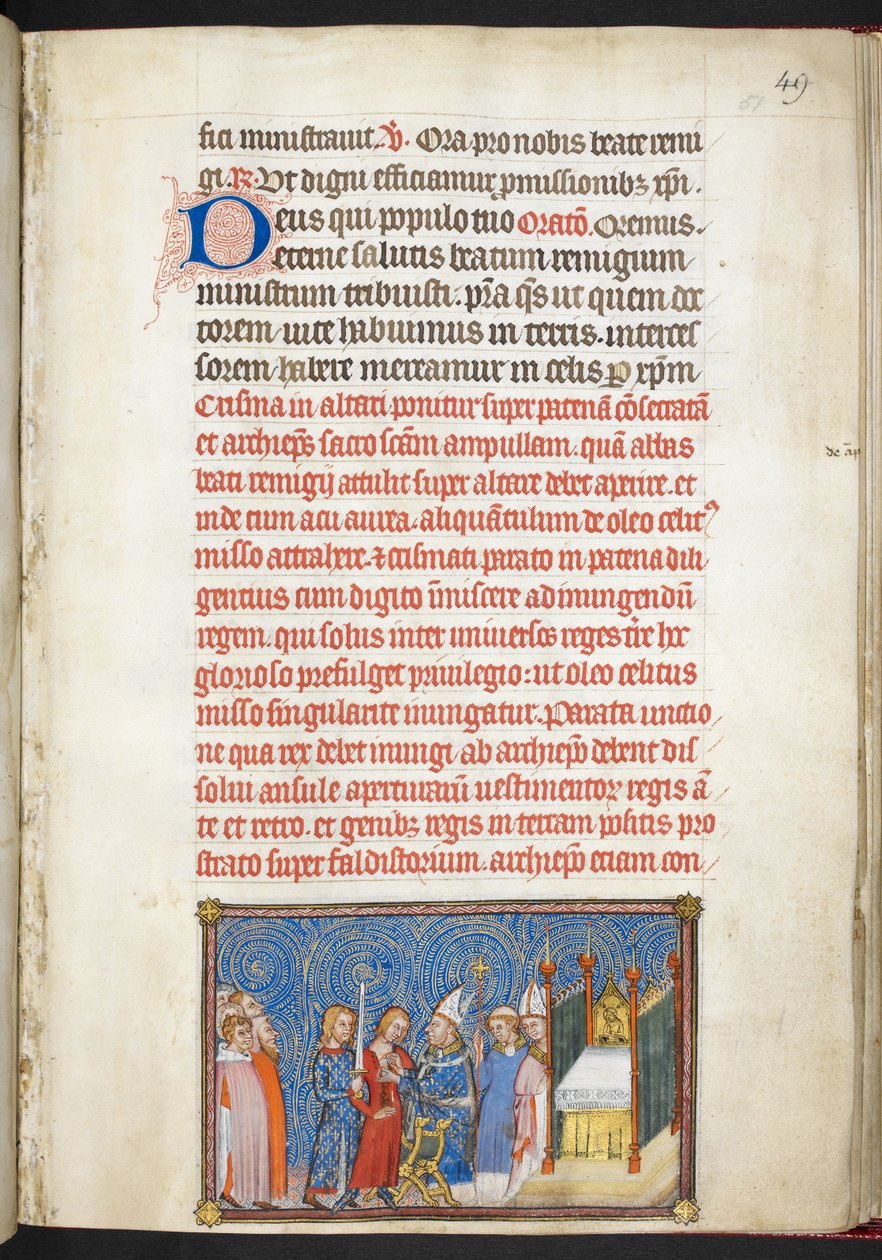 49
51
fici ministrauit. V̄. Ora pro nobis beate remi
gi. R. Vt digni efficiamur ꝓmissionibꝫ xp̄i.
Deus qui populo tuo Oratō. Oremus.
eterne salutis beatum remigium
ministrum tribuisti. p̄ra q̄s ut quem doc
torem uite habuimus in terris. interces
sorem habere mereamur in celis p xp̄m
Crisma in altari ponitur super patenā cōsecratā
et archiep̄s sacro scām ampullam. quā abbas
beati remigij attulit super altare debet aperire. et
inde cum acu aurea. aliquātulum de oleo celitꝰ
misso attrahere. ⁊ crismati parato in patena dili
gencius cum digito īmiscere ad inungendū
regem. qui solus inter uniuersos reges tr̄re hoc
glorioso prefulget priuilegio: ut oleo celitus
misso singularite inungatur. Parata unctio
ne qua rex debet inungi. ab archiep̄o debent dis
solui ansule aperturarū uestimentoꝝ regis ā
te et retro. et genibꝫ regis in terram positis pro
strato super faldistorium. archiep̄o etiam con
de āp